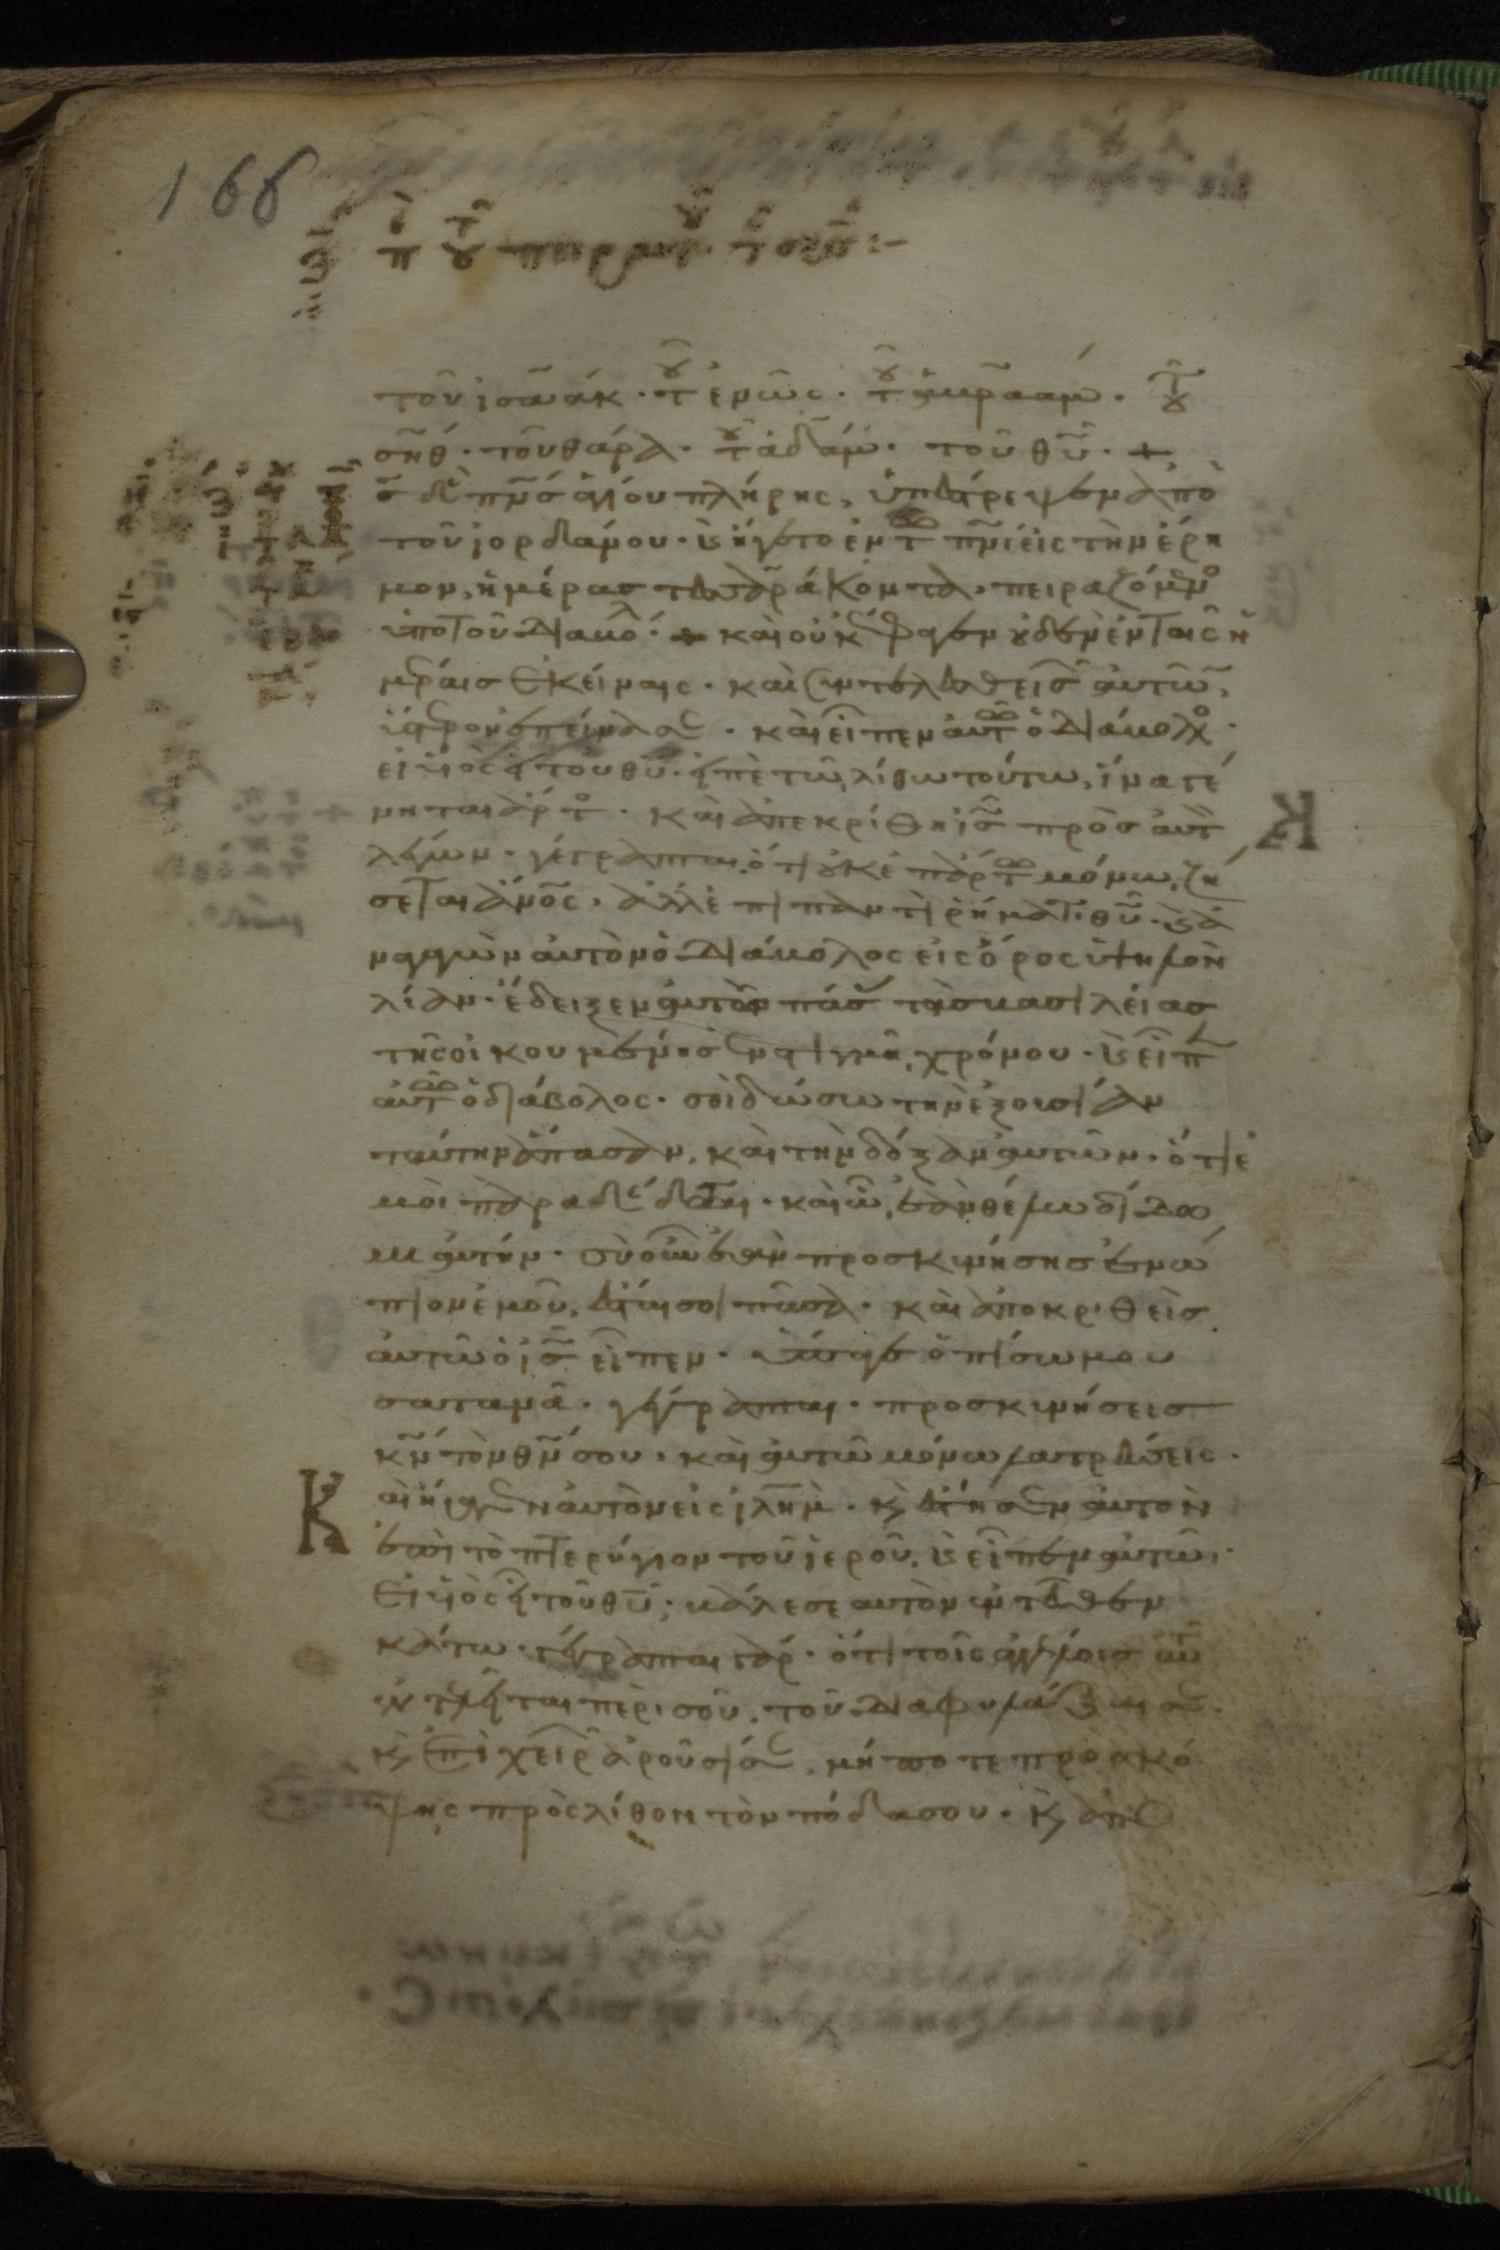 166
τοῦ ἰσαάκ · τοῦ ἐνῶς · τοῦ ἀβρααμ · τοῦ
σὴθ · τοῦ θάρα · τοῦ ἀδάμ · τοῦ θῦ · +
ις δὲ πνς ἁγίου πλήρης, ὑπέστρεψεν ἀπὸ
τοῦ ἰορδάνου · καὶ ἤγετο ἐν τῶ πνι εἰς τὴν ἔρη
μον, ἡμέρας τεσσαράκοντα, πειραζόμενος
ὑπὸ τοῦ διαβόλου · καὶ οὐκ ἔφαγεν οὐδὲν ἐν ταῖς ἡ
μέραις ἐκείναις · καὶ συντελεσθεισῶν αὐτῶν,
ὕστερον ἐπείνασεν · καὶ εἶπεν αὐτῶ ὁ διάβολος ·
εἰ υἱὸς εἶ τοῦ θῦ · εἰπὲ τῶ λίθω τούτω, ἵνα γέ
νηται ἄρτος · καὶ ἀπεκρίθη ις πρὸς αὐτὸν
λέγων · γέγραπται ὅτι οὐκ ἐπ ἄρτω μόνω ζή
σεται ἄνος · ἀλλ ἐπι παντὶ ῥήματι θῦ · καὶ ἀ
ναγαγὼν αὐτὸν ὁ διάβολος εἰς ὄρος ὑψηλὸν
λίαν · ἔδειξεν αὐτῶ πάσας τὰς βασιλείας
τῆς οἰκουμένης ἐν στιγμῆ χρόνου · καὶ εἶπεν
αὐτῶ ὁ διάβολος · σοὶ δώσω τὴν ἐξουσίαν
ταύτην ἅπασαν, καὶ τὴν δόξαν αὐτῶν · ὅτι ἐ
μοὶ παραδέδοται · καὶ ὧ ἐὰν θέλω δίδω
μι αὐτήν · σὺ οὖν ἐὰν προσκυνήσης ἐνώ
πιον ἐμοῦ, ἔσται σοι πᾶσα · καὶ ἀποκριθεὶς
αὐτῶ ὁ ις εἶπεν · ὕπαγε ὀπίσω μου
σατανᾶ · γέγραπται · προσκυνήσεις
κν τὸν θν σου · καὶ αὐτῶ μόνω λατρεύσεις ·
Καὶ ἤγαγεν αὐτὸν εἰς ιλημ · καὶ ἔστησεν αὐτὸν
ἐπὶ τὸ πτερύγιον τοῦ ἱεροῦ, καὶ εἶπεν αὐτῶ ·
Εἰ υἱὸς εἶ τοῦ θῦ · βάλε σεαυτὸν ἐντεῦθεν
κάτω · γέγραπται γὰρ · ὅτι τοῖς ἀγγέλοις αὐτοῦ
ἐντελεῖται περὶ σοῦ, τοῦ διαφυλάξαι σε ·
καὶ ἐπὶ χειρῶν ἀροῦσί σε, μήποτε προσκό
ψης πρὸς λίθον τὸν πόδα σου · καὶ ἀπο